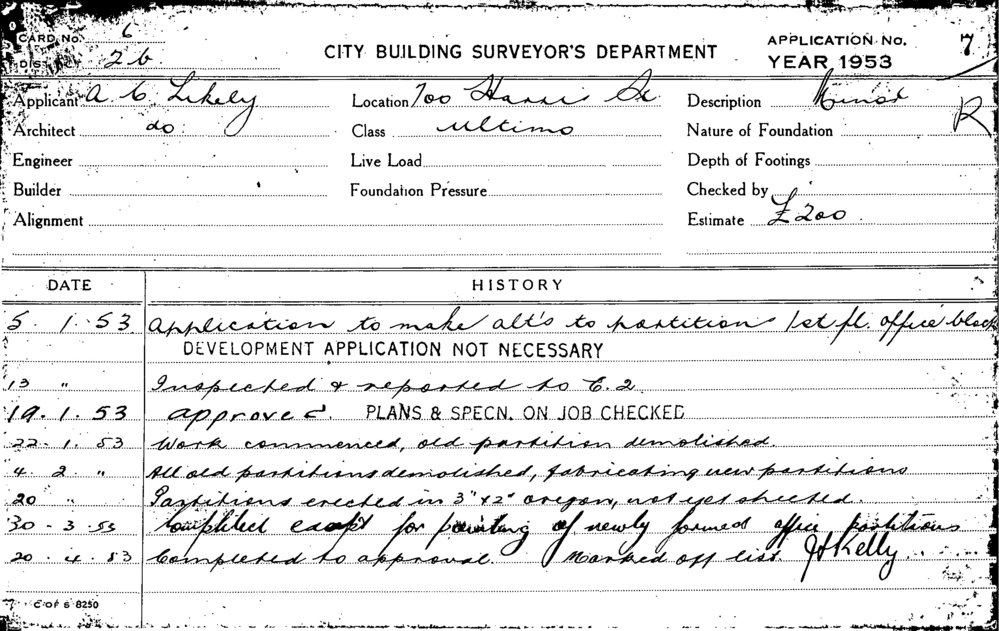 CARD No. 6
CITY BUILDING SURVEYOR'S DEPARTMENT
APPLICATION No. 7
DISTRICT 2b
YEAR 1953
Applicant A. C. Likely
Location 700 Harris St
Description Minor
R
Architect do
Class Ultimo
Nature of Foundation
Engineer
Live Load
Depth of Footings
Builder
Foundation Pressure
Checked by
Alignment
Estimate £200
DATE HISTORY
5. 1. 53 Application to make alt's to partition 1st fl. office block
DEVELOPMENT APPLICATION NOT NECESSARY
13 " Inspected & reported to E.2
19. 1. 53 approved PLANS & SPECN. ON JOB CHECKED
22. 1. 53 Work commenced, old partition demolished.
4. 2. " All old partitions demolished, fabricating new partitions
20 " Partitions erected in 3" x 2" oregon, not yet sheeted.
30 - 3 - 53 Completed except for painting of newly formed office partitions
20. 4. 53 Completed to approval. Marked off list. JH Kelly
C OF S 8250